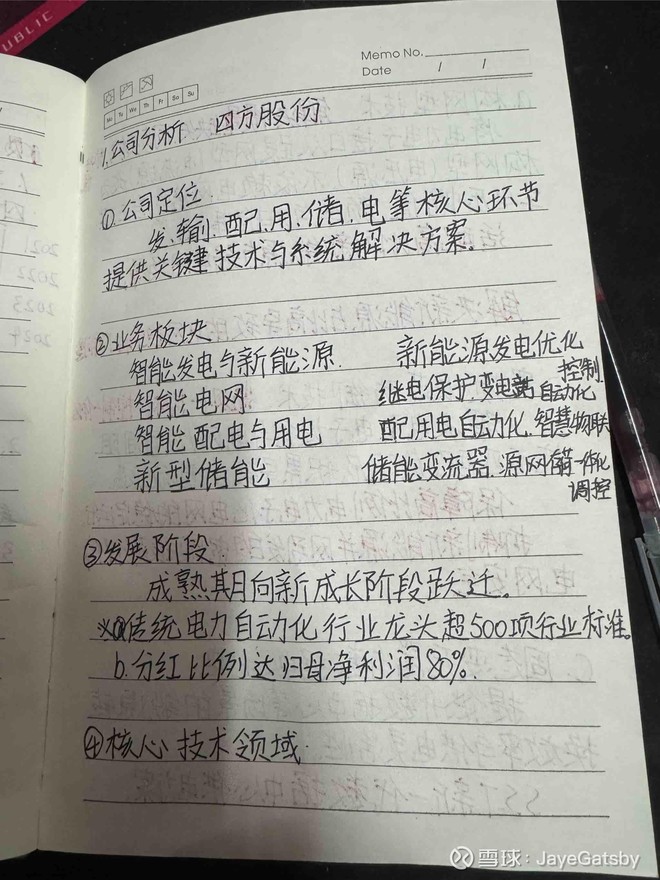 PUBLIC
Memo No.
Date / /
Mo Tu We Th Fr Sa Su
1.公司分析 四方股份
①.公司定位.
发.输.配.用.储.电等核心环节
提供关键技术与系统解决方案。
②业务板块
智能发电与新能源. 新能源发电优化控制.
智能电网 继电保护.变电站自动化
智能配电与用电 配用电自动化.智慧物联
新型储能 储能变流器.源网储一体化调控
③发展阶段.
成熟期向新成长阶段跃迁。
※a传统电力自动化行业龙头超500项行业标准。
b.分红比例达归母净利润80%.
④核心技术领域.
2021
2022
2023
2024
雪球:JayeGatsby